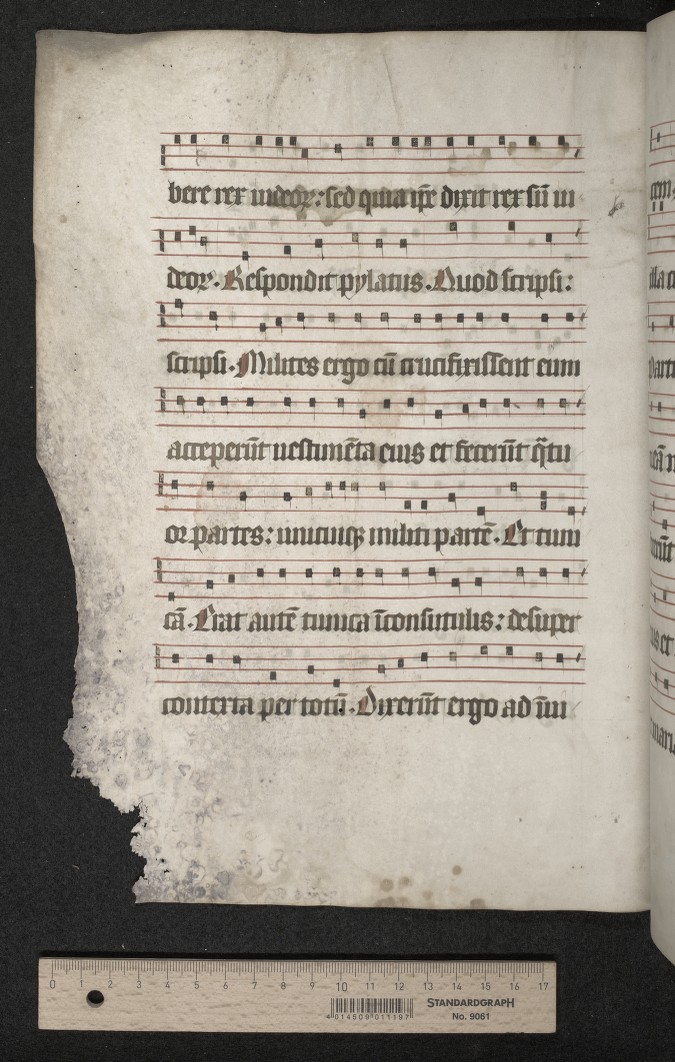 bere rex iudeoꝝ: sed quia ip̄e dixit rex sū iu
deoꝝ. Respondit pylatus. Quod scripsi:
scripsi. Milites ergo cū crucifixissent eum
acceperūt uestimēta eius et fecerūt q̄tu
or partes: unicuiqꝫ militi partē. Et tuni
cā. Erat autē tunica īconsutilis: desuper
contexta per totū. Dixerūt ergo ad īui
0 1 2 3 4 5 6 7 8 9 10 11 12 13 14 15 16 17
4 014509 011197
STANDARDGRAPH
No. 9061